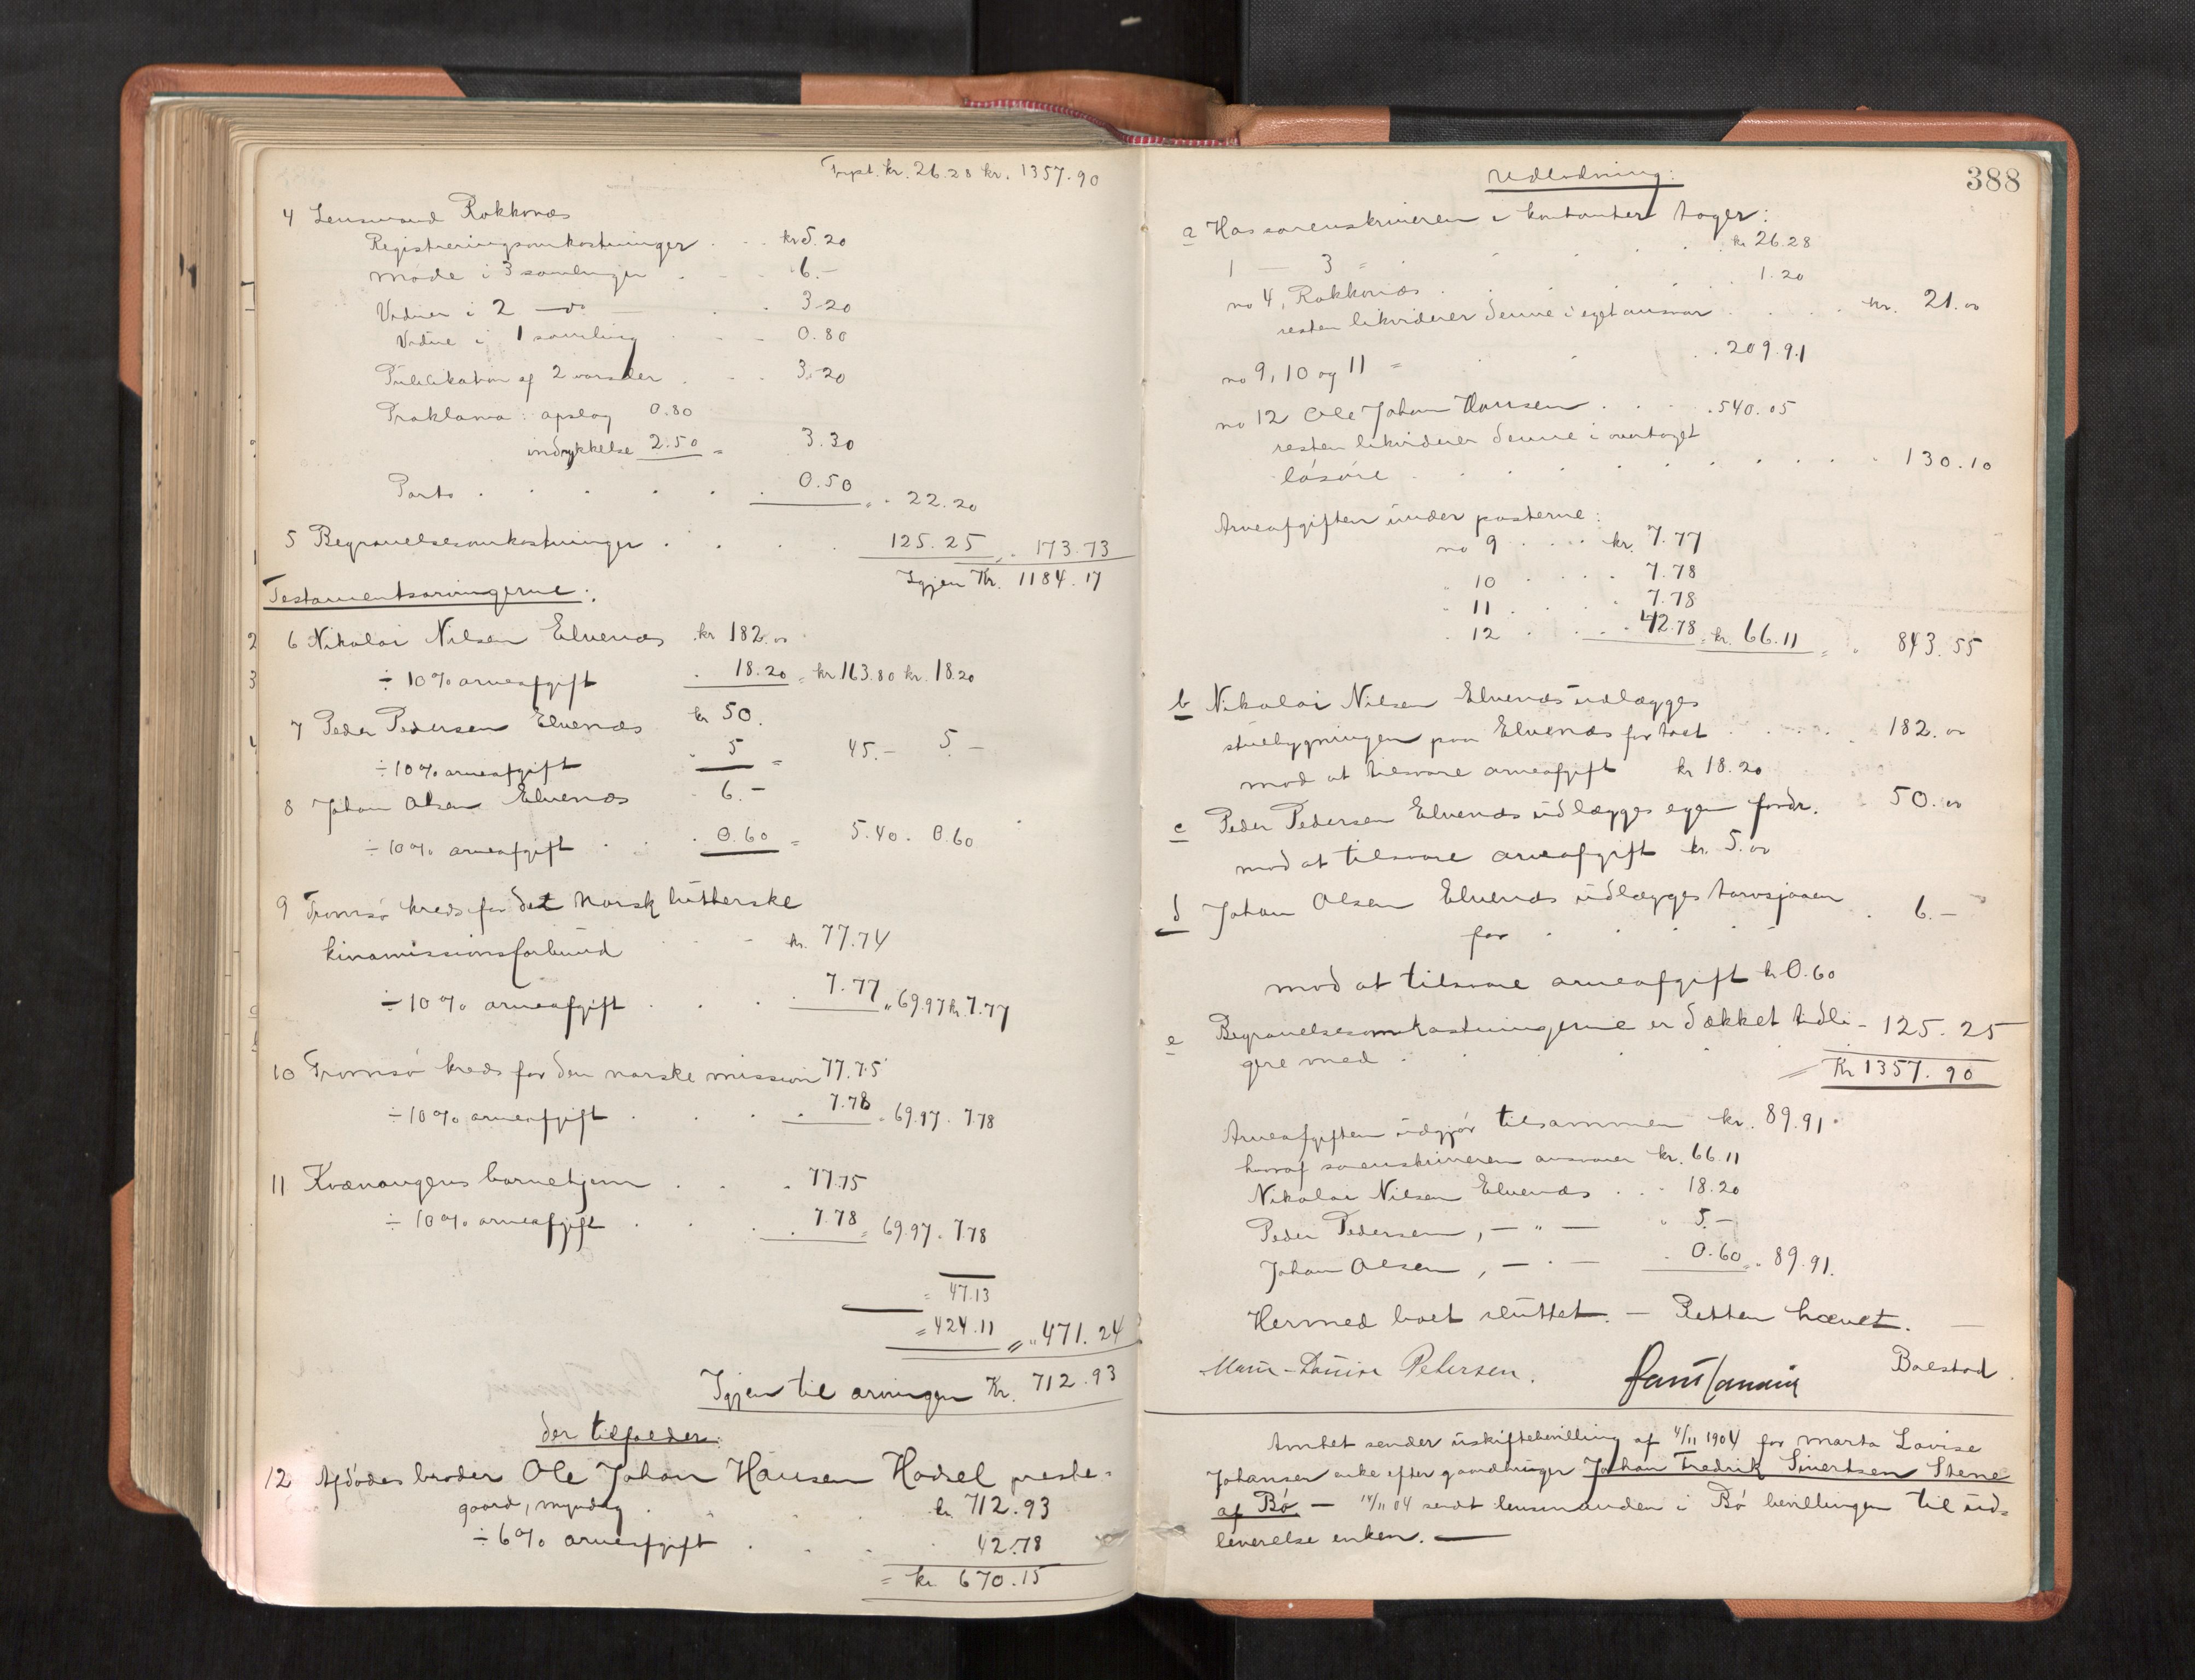 Trspt. kr. 26.28 kr. 1357.90
4 Lensmand Rokkonæs
Registreringsomkostninger . . . kr 5.20
møde i 3 samlinger . . . 6.-
Vidner i 2 —do— . . 3.20
Vidne i 1 samling . . . 0.80
Publikation af 2 varsler . . . 3.20
Proklama: opslag 0.80
indrykkelse 2.50 = 3.30
Porto . . . . . . 0.50 " . 22.20
5 Begravelsesomkostninger . . . . 125.25 " . 173.73
Igjen Kr. 1184.17
Testamentsarvingerne:
6 Nikolai Nilsen Elvenæs kr 182.00
÷ 10% arveafgift . 18.20 = kr 163.80 kr. 18.20
7 Peder Pedersen Elvenæs kr 50.
÷ 10% arveafgift . 5 = 45.- 5.-
8 Johan Olsen Elvenæs . 6.-
÷ 10% arveafgift . . . 0.60 = 5.40 . 0.60
9 Tromsø kreds for det norsk lutherske
kinamissionsforbund . . . kr. 77.74
÷ 10% arveafgift . . . . 7.77 " 69.97 kr. 7.77
10 Tromsø kreds for den norske mission 77.75
÷ 10% arveafgift . . . . 7.78 . 69.97 . 7.78
11 Kvænangens barnehjem . . . 77.75
÷ 10% arveafgift . . . . 7.78 = 69.97 . 7.78
= 47.13
= 424.11 = " 471.24
Igjen til arvingen Kr. 712.93
der tilfalder:
12 Afdødes broder Ole Johan Hansen Hadsel preste-
gaard, myndig . . . kr. 712.93
÷ 6% arveafgift . . . . 42.78
= kr 670.15
388
Udlodning:
a Hos sorenskriveren i kontanter tages:
1 — 3 = . . . . . kr 26.28
no 4, Rokkonæs . . . . . 1.20
resten likviderer denne i eget ansvar . . . . kr. 21.00
no 9, 10 og 11 = . . . 209.91
no 12 Ole Johan Hansen . . . . 540.05
resten likviderer denne i overtaget
løsøre . . . . . . . . . . 130.10
Arveafgiften under posterne:
no 9 . . . . kr. 7.77
" 10 . . . . 7.78
" 11 . . . . 7.78
" 12 . . . . 42.78 = kr. 66.11 = " 843.55
b Nikolai Nilsen Elvenæs udlægges
stuebygningen paa Elvenæs for taxt . . . . . 182.00
mod at tilsvare arveafgift kr 18.20
c Peder Pedersen Elvenæs udlægges egen fordr. . 50.00
mod at tilsvare arveafgift kr. 5.00
d Johan Olsen Elvenæs udlægges
for . . . . . 6.-
mod at tilsvare arveafgift kr 0.60
e Begravelsesomkostningerne er dækket tidli- 125.25
gere med . . . .
= Kr 1357.90
Arveafgiften udgjør tilsammen kr. 89.91.
hvoraf sorenskriveren ansvarer kr. 66.11
Nikolai Nilsen Elvenæs . . . 18.20
Peder Pedersen, — " — " 5.-
Johan Olsen, — . — . 0.60 = . 89.91.
Hermed boet sluttet. — Retten hævet. —
Marie-Louise Petersen. Balstad.
Amtet sender uskiftebevilling af 4/11 1904 for Marta Lovise
Johansen enke efter gaardbruger Johan Fredrik Sivertsen Stene
af Bø — 14/11 04 sendt lensmanden i Bø bevillingen til ud-
leverelse enken. —